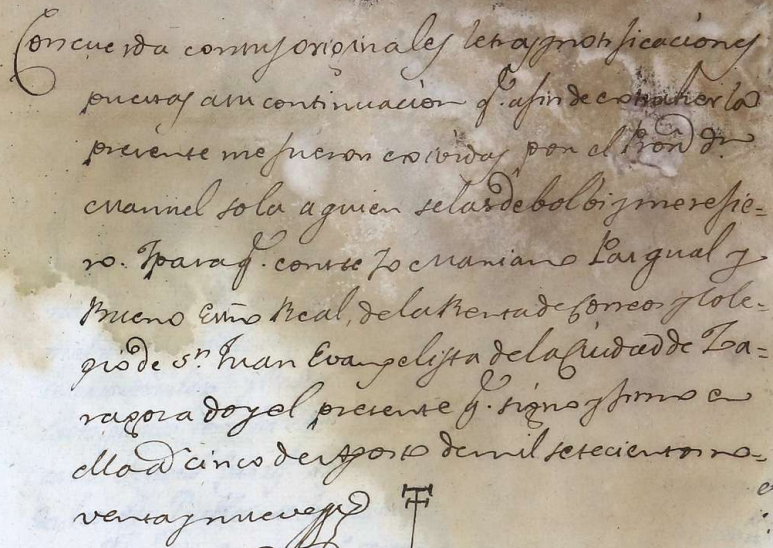 Concuerda con sus originales letras y notificaciones
puestas a su continuacion q.e a fin de extraher la
presente me fueron exividas por el Pror. dn.
Manuel Sola a quien se las debolbi y me refie=
ro. Y para q.e conste Yo Mariano Pasqual y
Bueno Essno Real, de la Renta de Correos y Cole=
gio de Sn. Juan Evangelista de la Ciudad de Za=
ragoza doy el presente q.e signo y firmo en
ella a cinco de Agosto de mil setecientos no=
venta y nueve